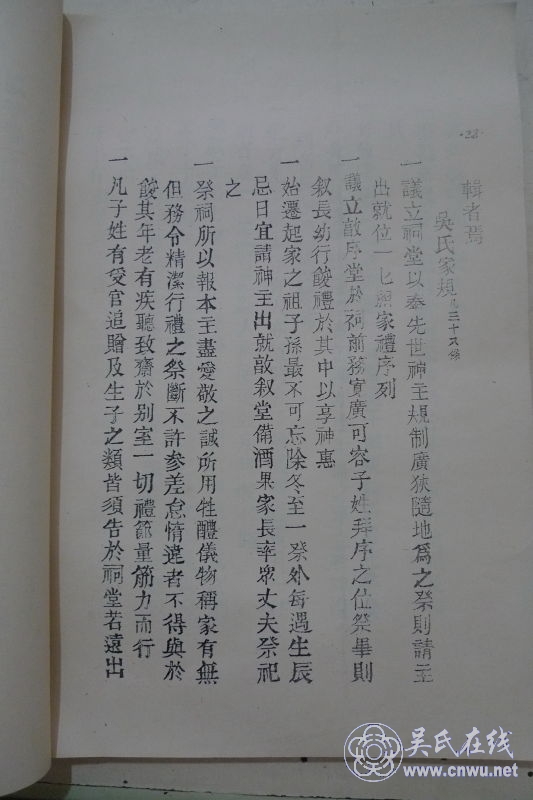 ·28·
輯者焉
吳氏家規凡三十六條
一議立祠堂以奉先世神主規制廣狹隨地爲之祭則請主
出就位一匕照家禮序列
一議立敘序堂於祠前務寬廣可容子姓拜序之位祭畢則
叙長幼行餕禮於其中以享神惠
一始遷起家之祖子孫最不可忘除冬至一祭外每遇生辰
忌日宜請神主出就敘叙堂備酒果家長率眾丈夫祭祀
之
一祭祠所以報本主盡愛敬之誠所用牲醴儀物稱家有無
但務令精潔行禮之祭斷不許參差怠惰違者不得與於
餕其年老有疾聽致齋於别室一切禮節量筋力而行
一凡子姓有受官追贈及生子之類皆須告於祠堂若遠出
吴氏在线
www.cnwu.net